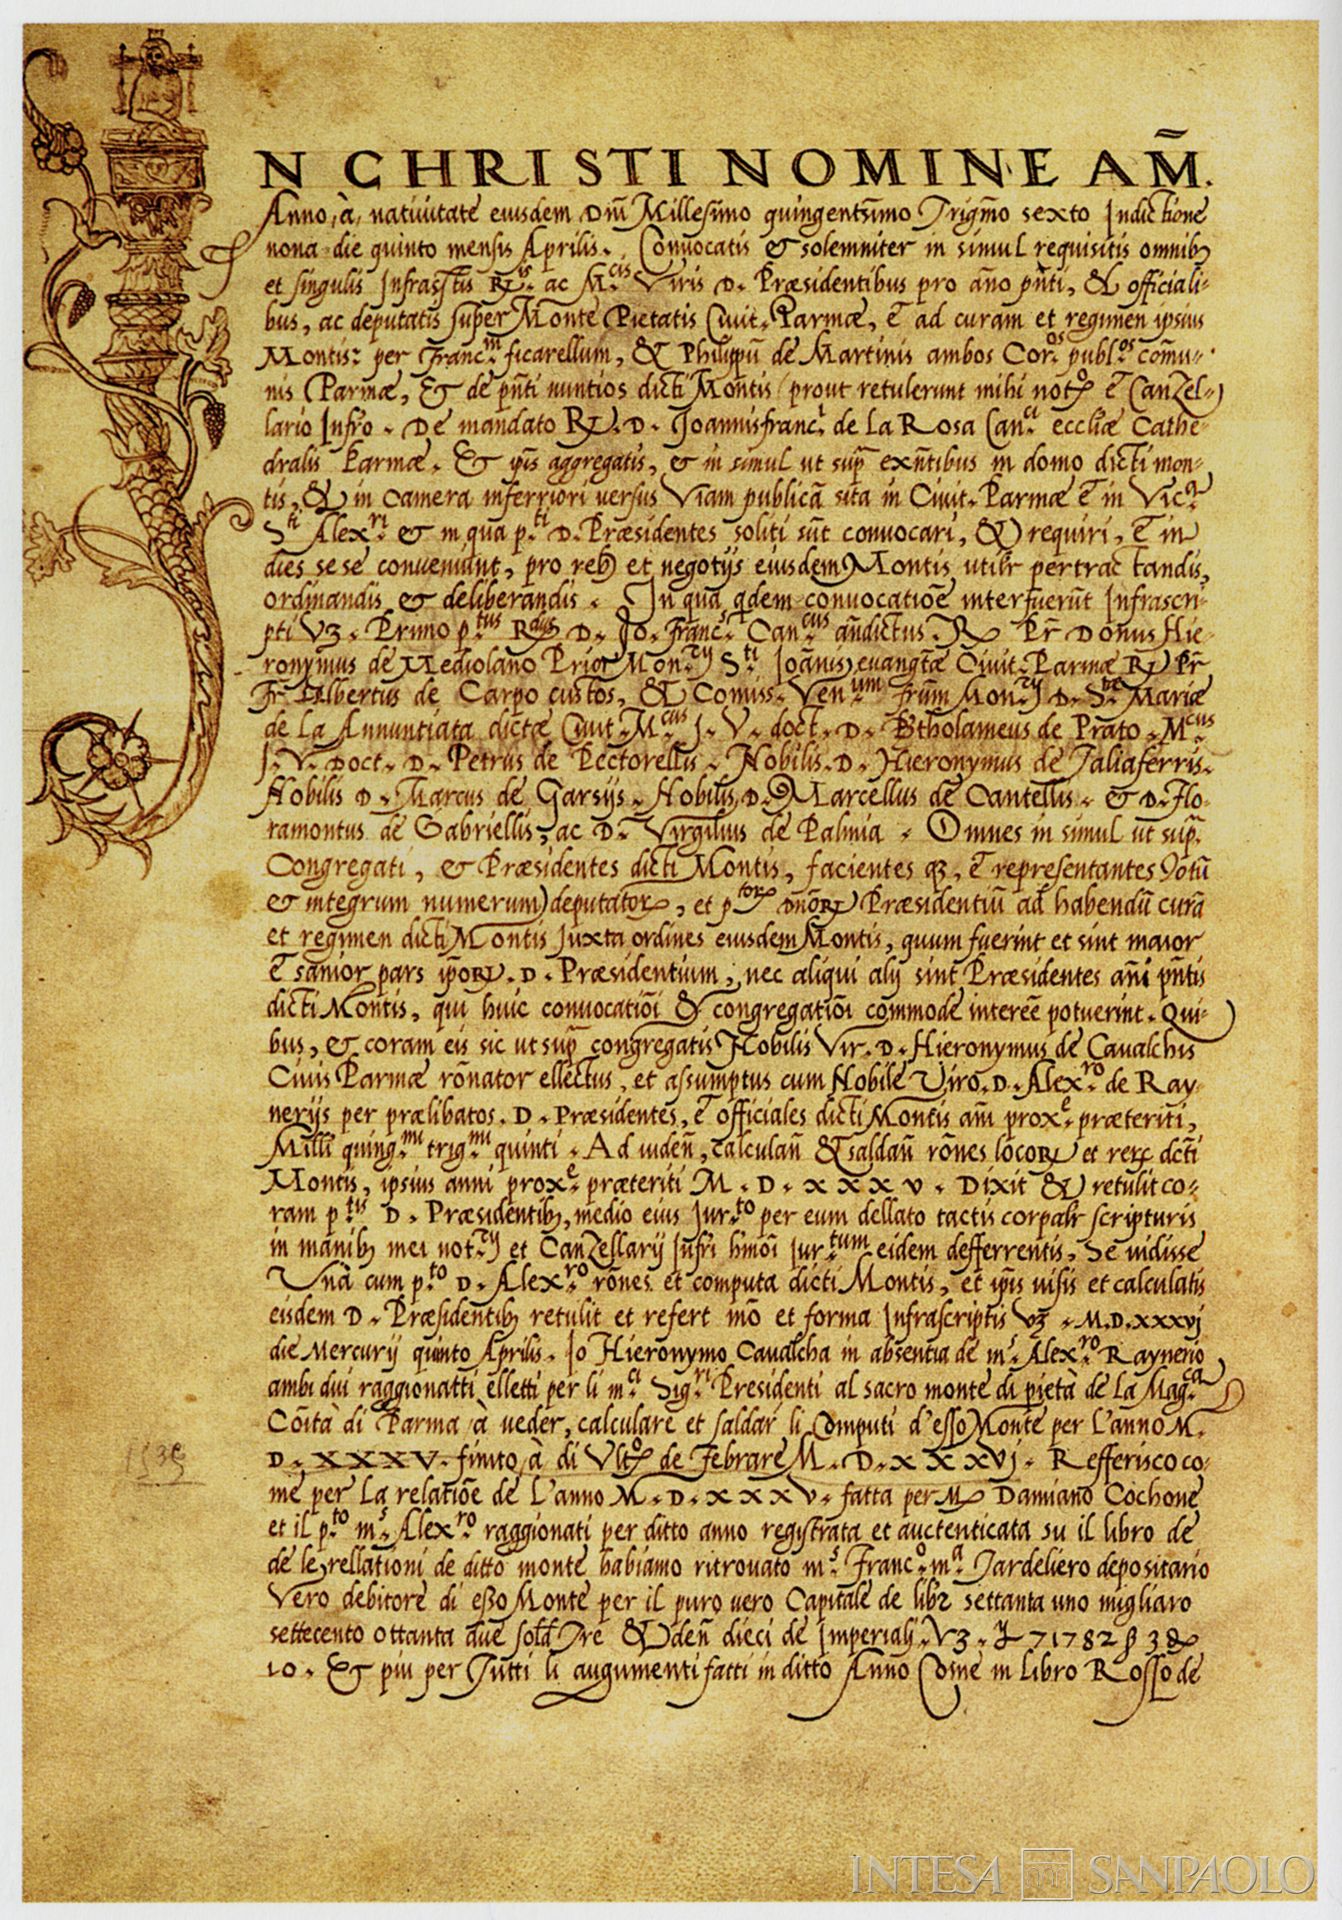 IN CHRISTI NOMINE AM̃.
Anno, à, natiuitate eiusdem Dñi Millesimo quingentesimo Trigmo sexto Indictione
nona die quinto mensis Aprilis. Conuocatis & solemniter in simul requisitis omnib
et singulis Infrasstis R.is ac M.cis Viris D. Præsidentibus pro año pñti, & officiali-
bus, ac deputatis super Monte Pietatis Ciuit. Parmæ, & ad curam et regimen ipsius
Montis: per Franc.m ficarellum, & Philippũ de Martinis ambos Cor.os publ.os cõmu-
nis Parmæ, & de pñti nuntios dicti Montis prout retulerunt mihi not.o & Canzel-
lario Infro. De mandato R. D. Joannisfranc.i de La Rosa Can.ci eccliæ Cathe-
dralis Parmæ. & ipis aggregatis, & in simul ut sup exñtibus in domo dicti mon-
tis, & in camera inferriori versus Viam publicã sita in Ciuit. Parmæ & in Vic.a
S.ti Alex.ri & in qua p.ti D. Præsidentes soliti sũt conuocari, & requiri, & in
dies se se conueniunt, pro reb et negotijs eiusdem Montis utilr pertractandis,
ordinandis & deliberandis. In qua qdem conuocatiõe interfuerũt Infrascri-
pti Vz. Primo p.tus R.dus D. Jo. Franc.s Can.cus añdictus. R Pr Donus Hie-
ronymus de Mediolano Prior Mon.rij S.ti Joannis euangtæ Ciuit. Parmæ R Pr
Fr Albertus de Carpo custos, & Comiss. Ven.um frum Mon.rij D. S.tæ Mariæ
de La Annuntiata dictæ Ciuit. M.cus J. V. doct. D. Btholameus de Prato. M.cus
J. V. Doct. D. Petrus de Pectorellis. Nobilis. D. Hieronymus de Taliaferris.
Nobilis D. Marcus de Garsijs. Nobilis, D. Marcellus de Cantellis. & D. Flo-
ramontus de Gabriellis, ac D. Virgilius de Palmia. Omnes in simul ut sup.
Congregati, & Præsidentes dicti Montis, facientes q3, & representantes Totũ
& integrum numerum deputator, et p.tor dñor Præsidentiũ ad habendũ curã
et regimen dicti Montis Juxta ordines eiusdem Montis, quum fuerint et sint maior
& sanior pars ipor. D. Præsidentium, nec aliqui alij sint Præsidentes añi pñtis
dicti Montis, qui huic conuocatiõi & congregatiõi commode interee potuerint. Qui-
bus, & coram eis sic ut sup congregatis Nobilis Vir. D. Hieronymus de Caualchis
Ciuis Parmæ rõnator ellectus, et assumptus cum Nobile Viro. D. Alex.ro de Ray-
nerijs per prælibatos. D. Præsidentes, & officiales dicti Montis añi prox.e præteriti,
Milli quing.mi trig.mi quinti. Ad uideñ, calculañ & saldañ rõnes locor et rer dcti
Montis, ipsius anni prox.e præteriti M. D. XXXV. Dixit & retulit co-
ram p.tis D. Præsidentib, medio eius Jur.to per eum dellato tactis corpalr scripturis
in manib mei not.rij et Canzellarij Jufri hmõi Jur.tum eidem defferrentis, Se uidisse
Vnà cum p.to D. Alex.ro rões et computa dicti Montis, et ipis uisis et calculatis
eisdem D. Præsidentib retulit et refert mõ et forma Infrascriptis Vz. M.D.xxxvj
die Mercurij quinto Aprilis. Jo Hieronymo Caualcha in absentia de m.s Alex.ro Raynerio
ambi dui raggionatti elletti per li m.ci Sig.ri Presidenti al sacro monte di pietà de La Mag.ca
Coĩtà di Parma à veder, calculare et saldar li Computi d'esso Monte per L'anno M.
D. XXXV. finito à di Vlt.o de Febrare M. D. XXXVJ. Refferisco co-
me per La relatiõe de L'anno M. D. XXXV. fatta per M Damiano Cochone
et il p.to m.s Alex.ro raggionati per ditto anno registrata et auctenticata su il libro de
de le rellationi de ditto monte habiamo ritrovato m.s Franc.o m.a Tardeliero depositario
Vero debitore di esso Monte per il puro vero Capitale de libr settanta uno migliaro
settecento ottanta due sold Tre & den dieci de Imperiali. Vz. L 71782 ß 3 &
10. & piu per Tutti li augumenti fatti in ditto Anno Come in Libro Rosso de
1535
INTESA SANPAOLO